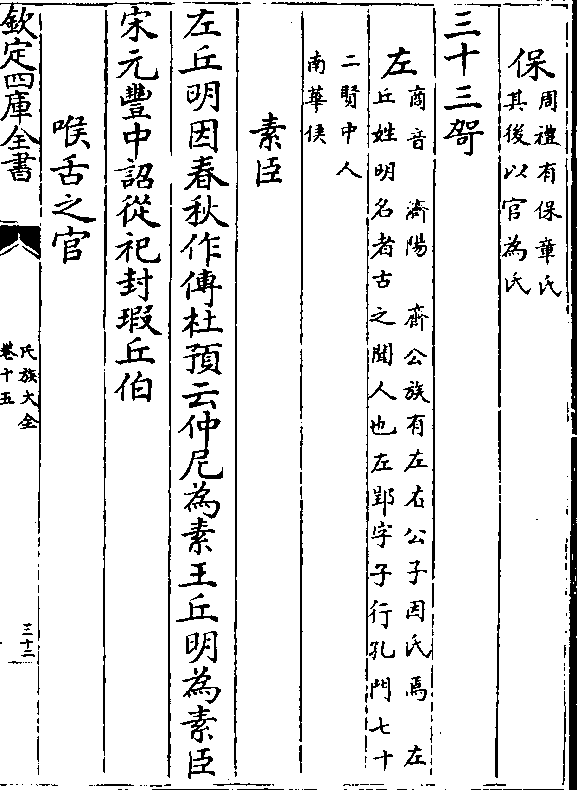 保
周禮有保章氏
其後以官為氏
三十三哿
左
商音 濟陽 齊公族有左右公子因氏焉 左
丘姓明名者古之聞人也左郢字子行孔門七十
二賢中人
南華侯
素臣
左丘明因春秋作傳杜預云仲尼為素王丘明為素臣
宋元豐中詔從祀封瑕丘伯
喉舌之官
欽定四庫全書
氏族大全
卷十五
三十二